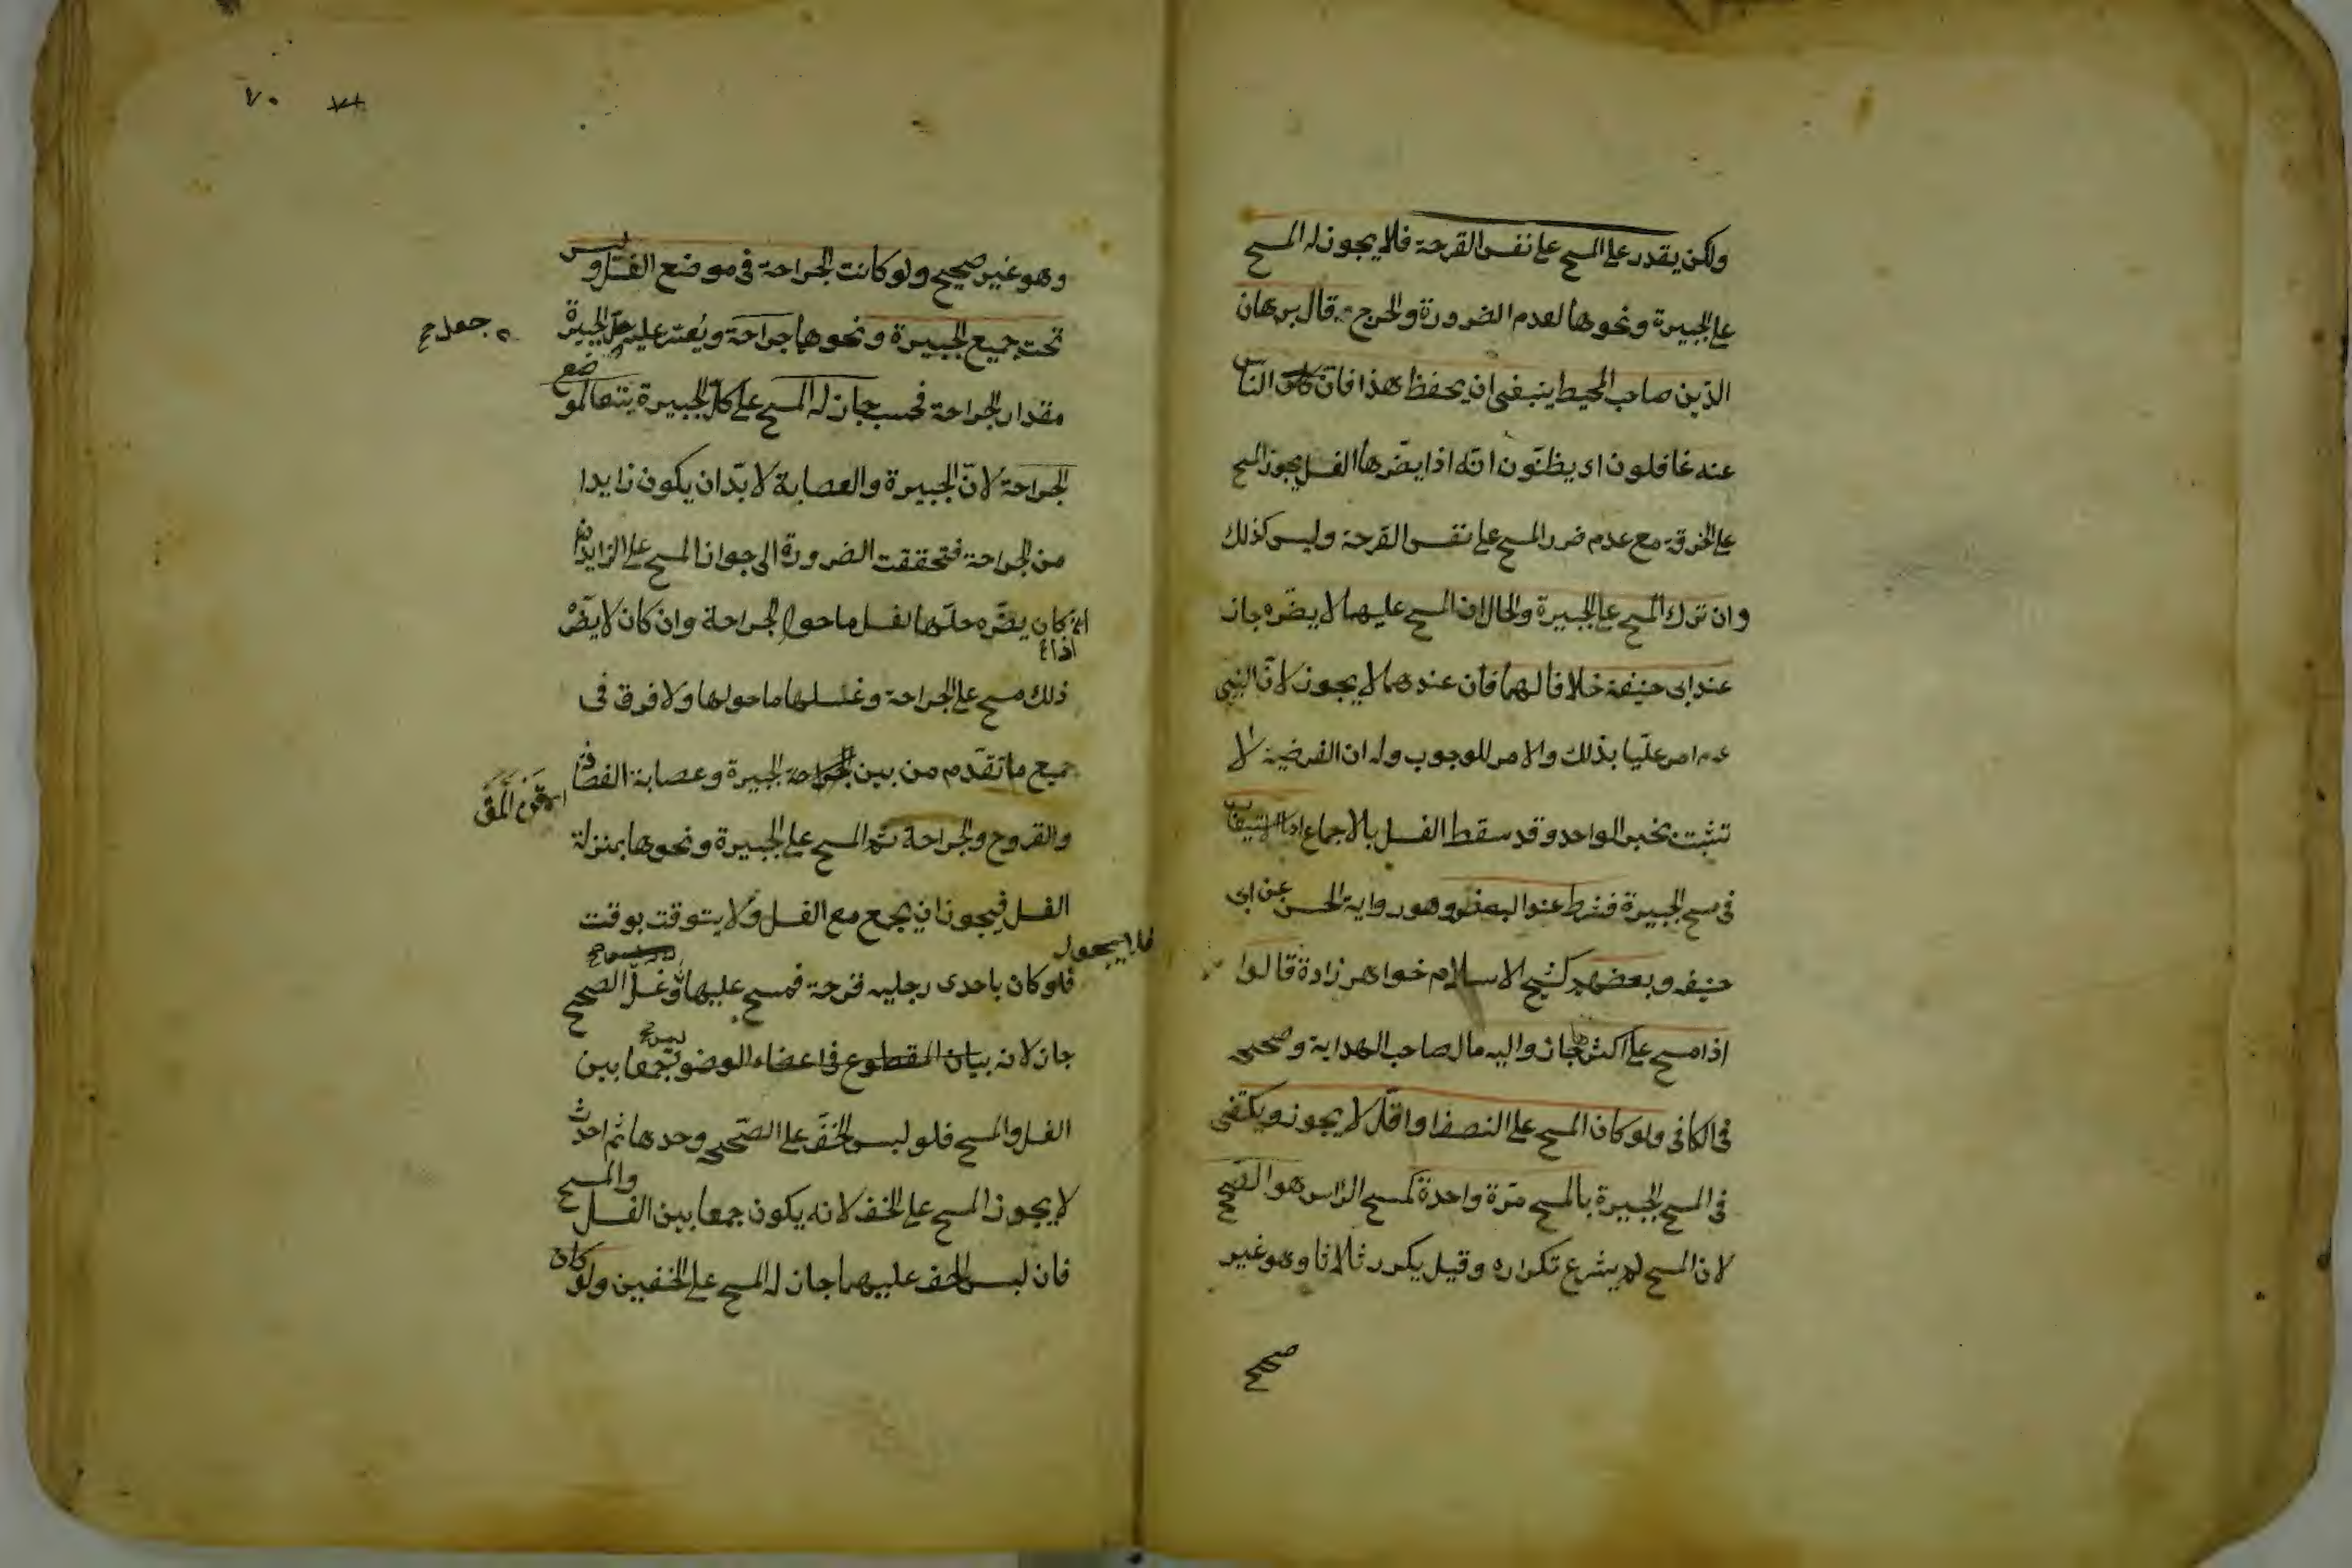 ولكن يقدر على المسح على نفس القرحة فلا يجوز له المسح
على الجبيرة ونحوها لعدم الضرورة والحرج قال برهان
الدين صاحب المحيط ينبغى ان يحفظ هذا فان الناس
عنه غافلون اى يظنون انه اذا يضرها الغسل يجوز المسح
على الخرقة مع عدم ضرر المسح على نفس القرحة وليس كذلك
وان ترك المسح على الجبيرة والحال ان المسح عليهما لا يضره جاز
عند ابى حنيفة خلافا لهما فان عندهما لا يجوز لان النبى
عم امر عليا بذلك والامر للوجوب وله ان الفرضية لا
تثبت بخبر الواحد وقد سقط الغسل بالاجماع اما الاستيعاب
فى مسح الجبيرة فشرط عند البعض وهو رواية الحسن عن ابى
حنيفه وبعضهم كشيخ الاسلام خواهر زادة قالوا
اذا مسح على اكثرها جاز واليه مال صاحب الهداية وصححه
فى الكافى ولو كان المسح على النصف او اقل لا يجوز ويكتفى
فى المسح الجبيرة بالمسح مرة واحدة كمسح الراس هو الصحيح
لان المسح لم يشرع تكراره وقيل يكرر ثلاثا وهو غير
صحيح
٧٠
وهو غير صحيح ولو كانت الجراحة فى موضع الغسل وليس
تحت جميع الجبيرة ونحوها جراحة ويعتد عليه حل الجبيرة
مقدار الجراحة فحسب جاز له المسح على كل الجبيرة تبعا لموضع
الجراحة لان الجبيرة والعصابة لا بد ان يكون زايدا
من الجراحة فتحققت الضرورة الى جواز المسح على الزايد
ان كان يضره حلها لغسل ما حول الجراحة وان كان لا يضره
ذلك مسح على الجراحة وغسلها ما حولها ولا فرق فى
جميع ما تقدم من بين الجبيرة وعصابة الفصد
والقروح والجراحة ثم المسح على الجبيرة ونحوها بمنزلة
الغسل فيجوز ان يجمع مع الغسل ولا يتوقت بوقت
فلو كان باحدى رجليه قرحة فمسح عليها وغسل الصحيح
جاز لانه ليس جمعا بين
الغسل والمسح فلو لبس الخف على الصحيحه وحدها ثم احدث
لا يجوز المسح على الخف لانه يكون جمعا بين الغسل والمسح
فان لبس الخف عليهما جاز له المسح على الخفين ولو كان